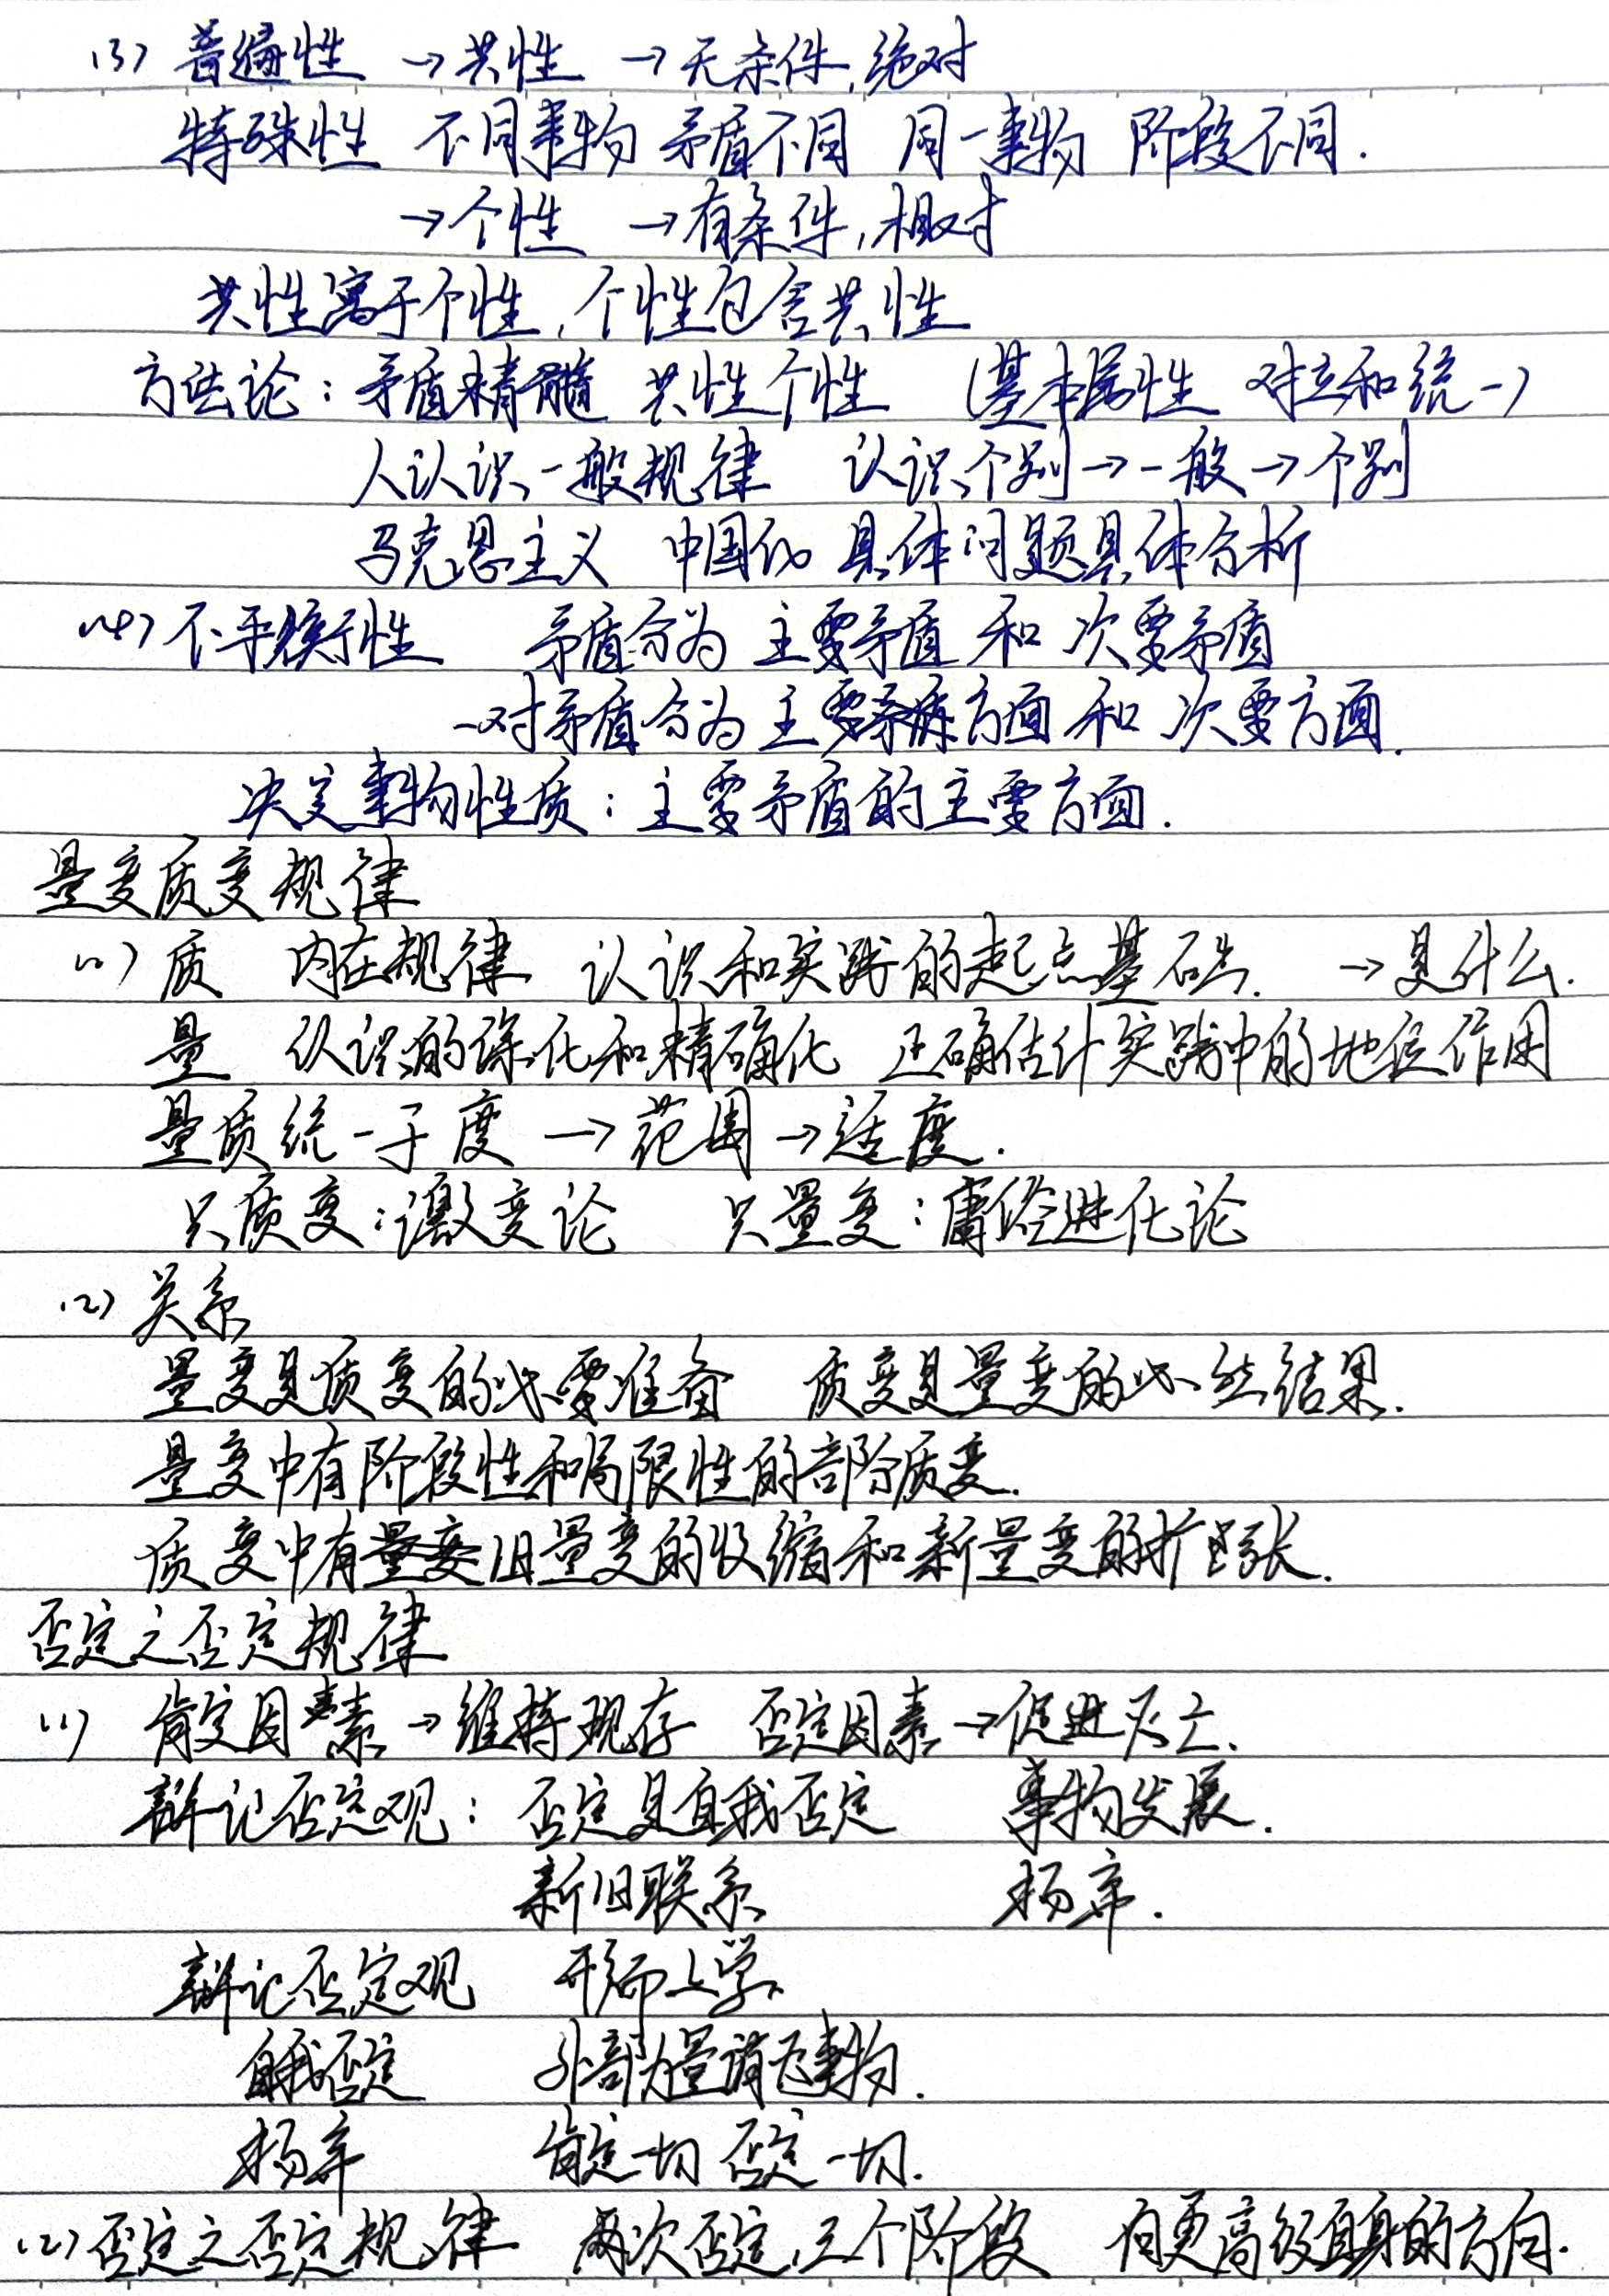 (3) 普遍性 → 共性 → 无条件,绝对
特殊性 不同事物 矛盾不同 同一事物 阶段不同.
→个性 →有条件,相对
共性寓于个性,个性包含共性
方法论:矛盾精髓 共性个性 (基本属性 对立和统一)
人认识一般规律 认识个别→一般→个别
马克思主义 中国化 具体问题具体分析
(4) 不平衡性 矛盾分为 主要矛盾 和 次要矛盾
一对矛盾分为 主要方面 和 次要方面.
决定事物性质:主要矛盾的主要方面.
量变质变规律
(1) 质 内在规律 认识和实践的起点基础. →是什么.
量 认识的深化和精确化 正确估计实践中的地位作用
量质统一于度 →范围→适度.
只质变:激变论 只量变:庸俗进化论
(2) 关系
量变是质变的必要准备 质变是量变的必然结果.
量变中有阶段性和局限性的部分质变.
质变中有旧量变的收缩和新量变的扩张.
否定之否定规律
(1) 肯定因素→维持现存 否定因素→促进灭亡.
辩记否定观:否定是自我否定 事物发展.
新旧联系 扬弃.
辩记否定观 形而上学
自我否定 外部力量消灭事物.
扬弃 肯定一切 否定一切.
(2)否定之否定规律 两次否定,三个阶段 向更高级自身的方向.